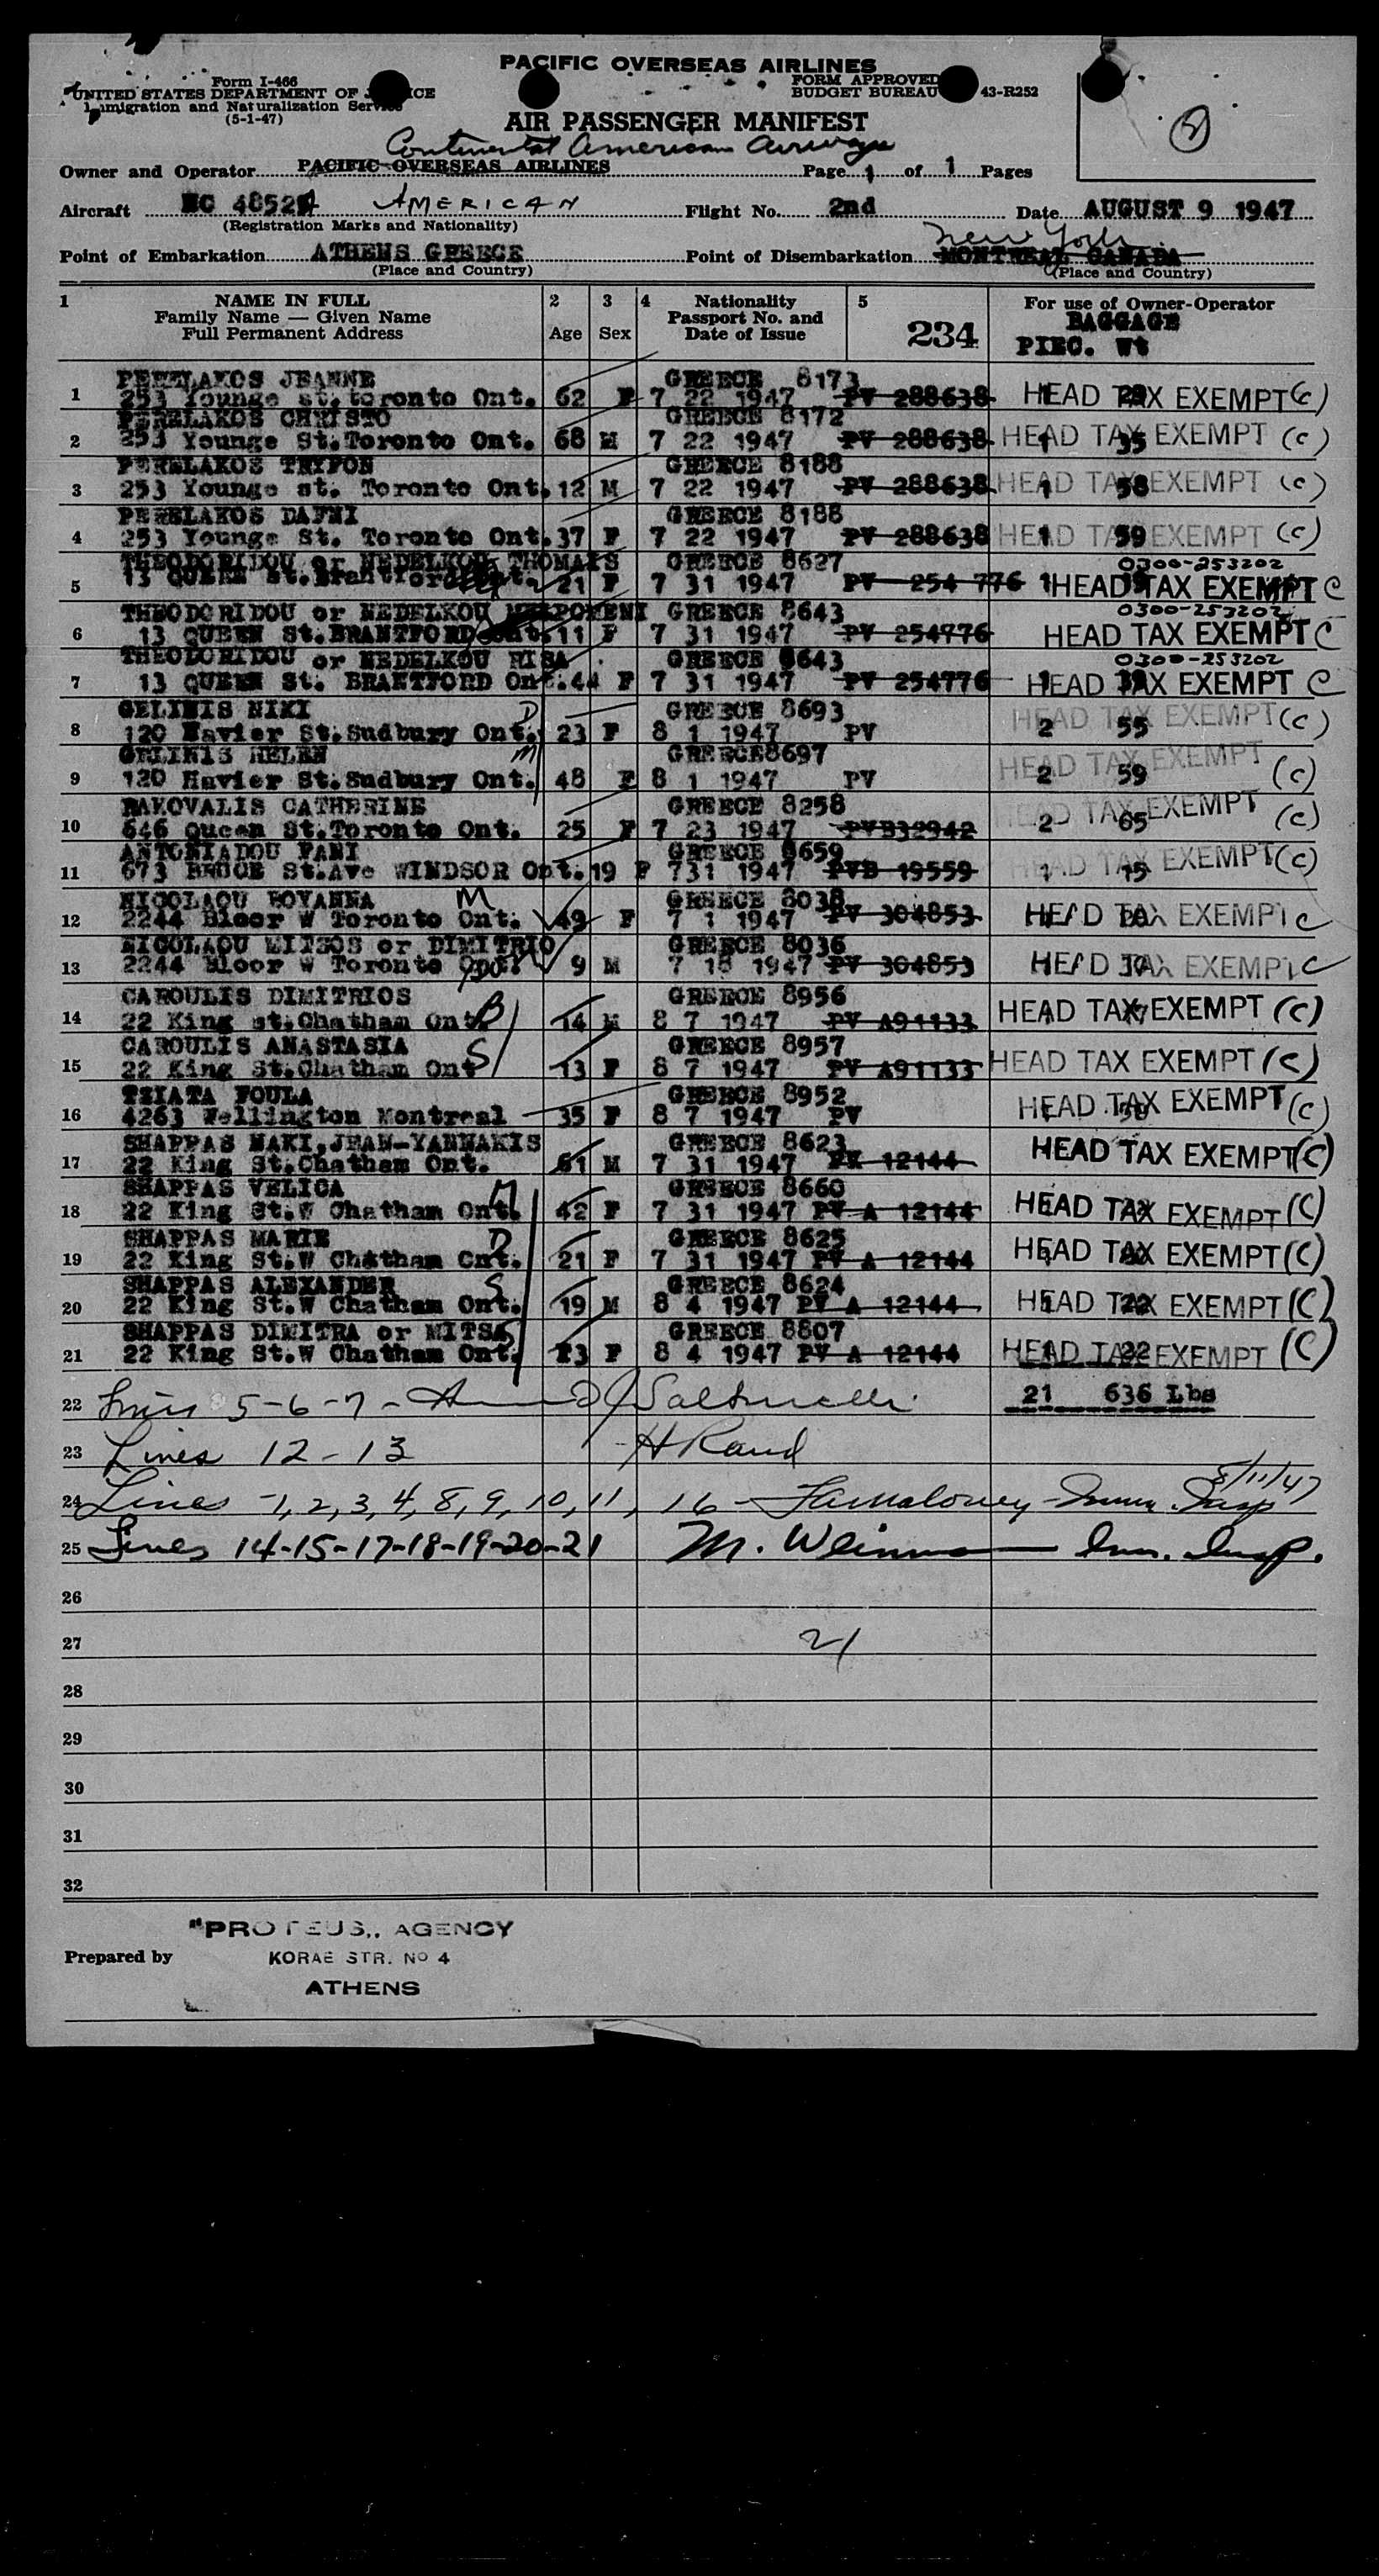 PACIFIC OVERSEAS AIRLINES
Form I-466
UNITED STATES DEPARTMENT OF
Immigration and Naturalization Service
(5-1-47)
FORM APPROVED
BUDGET BUREAU 43-R252
AIR PASSENGER MANIFEST
2
Continental American Airways
Owner and Operator PACIFIC OVERSEAS AIRLINES Page 1 of 1 Pages
Aircraft AMERICAN Flight No. 2nd Date AUGUST 9 1947
(Registration Marks and Nationality)
New York
Point of Embarkation ATHENS GREECE Point of Disembarkation MONTREAL CANADA
(Place and Country) (Place and Country)
1 NAME IN FULL 2 3 4 Nationality 5 For use of Owner-Operator
Family Name — Given Name Passport No. and BAGGAGE
Full Permanent Address Age Sex Date of Issue 234 PIEC. Wt
PERELAKOS JEANNE GREECE 8173
1 253 Younge st.toronto Ont. 62 F 7 22 1947 PV 288638 HEAD TAX EXEMPT (c)
PERELAKOS CHRISTO GREECE 8172
2 253 Younge St.Toronto Ont. 68 M 7 22 1947 PV 288638 1 35 HEAD TAX EXEMPT (c)
PERELAKOS TRYFON GREECE 8188
3 253 Younge st. Toronto Ont. 12 M 7 22 1947 PV 288638 1 58 HEAD TAX EXEMPT (c)
PERELAKOS DAFNI GREECE 8188
4 253 Younge St. Toronto Ont. 37 F 7 22 1947 PV 288638 1 59 HEAD TAX EXEMPT (c)
THEODORIDOU or NEDELKOU THOMAIS GREECE 8627 0300-253202
5 13 QUEEN St.Brantford 21 F 7 31 1947 PV 254 776 HEAD TAX EXEMPT C
THEODORIDOU or NEDELKOU GREECE 8643 0300-253202
6 13 QUEEN St.BRANTFORD Ont. 11 F 7 31 1947 PV 254776 HEAD TAX EXEMPT C
THEODORIDOU or NEDELKOU RISA GREECE 8643 0300-253202
7 13 QUEEN St. BRANTFORD Ont. 44 F 7 31 1947 PV 254776 HEAD TAX EXEMPT C
GELINIS NIKI D GREECE 8693
8 120 Havier St.Sudbury Ont. 23 F 8 1 1947 PV 2 55 HEAD TAX EXEMPT (c)
GELINIS HELEN M GREECE8697
9 120 Havier St.Sudbury Ont. 48 F 8 1 1947 PV 2 59 HEAD TAX EXEMPT (c)
BAKOVALIS CATHERINE GREECE 8258
10 646 Queen St.Toronto Ont. 25 F 7 23 1947 PVB32942 2 65 HEAD TAX EXEMPT (c)
ANTONIADOU FANI GREECE 8659
11 673 BRUCE St.Ave WINDSOR Ont. 19 F 731 1947 PVB 19559 1 15 HEAD TAX EXEMPT (c)
NICOLAOU BOYANNA M GREECE 8038
12 2244 Bloor W Toronto Ont. 49 F 7 1 1947 PV 304853 HEAD TAX EXEMPT C
NICOLAOU MITSOS or DIMITRIO GREECE 8036
13 2244 Bloor W Toronto Ont. 9 M 7 18 1947 PV 304853 HEAD TAX EXEMPT C
CAROULIS DIMITRIOS B GREECE 8956
14 22 King st.Chatham Ont. 14 M 8 7 1947 PV A91133 HEAD TAX EXEMPT (C)
CAROULIS ANASTASIA S GREECE 8957
15 22 King St.Chatham Ont 13 F 8 7 1947 PV A91133 HEAD TAX EXEMPT (C)
TSIATA FOULA GREECE 8952
16 4263 Wellington Montreal 35 F 8 7 1947 PV HEAD TAX EXEMPT (c)
SHAPPAS MAKI,JEAN-YANNAKIS GREECE 8623
17 22 King St.Chatham Ont. 61 M 7 31 1947 12144 HEAD TAX EXEMPT (C)
SHAPPAS VELICA M GREECE 8660
18 22 King St.W Chatham Ont. 42 F 7 31 1947 PV A 12144 HEAD TAX EXEMPT (C)
SHAPPAS MARIE D GREECE 8625
19 22 King St.W Chatham Ont. 21 F 7 31 1947 PV A 12144 HEAD TAX EXEMPT (C)
SHAPPAS ALEXANDER S GREECE 8624
20 22 King St.W Chatham Ont. 19 M 8 4 1947 PV A 12144 1 22 HEAD TAX EXEMPT (C)
SHAPPAS DIMITRA or MITSA GREECE 8807
21 22 King St.W Chatham Ont. 13 F 8 4 1947 PV A 12144 1 22 HEAD TAX EXEMPT (C)
22 Lines 5-6-7- 21 636 Lbs
23 Lines 12-13 H Rand
8/11/47
24 Lines 1, 2, 3, 4, 8, 9, 10, 11, 16 - Maloney Imm. Insp
25 Lines 14-15-17-18-19-20-21 M. Imm. Insp.
26
27 21
28
29
30
31
32
"PROTEUS,, AGENCY
Prepared by KORAE STR. No 4
ATHENS